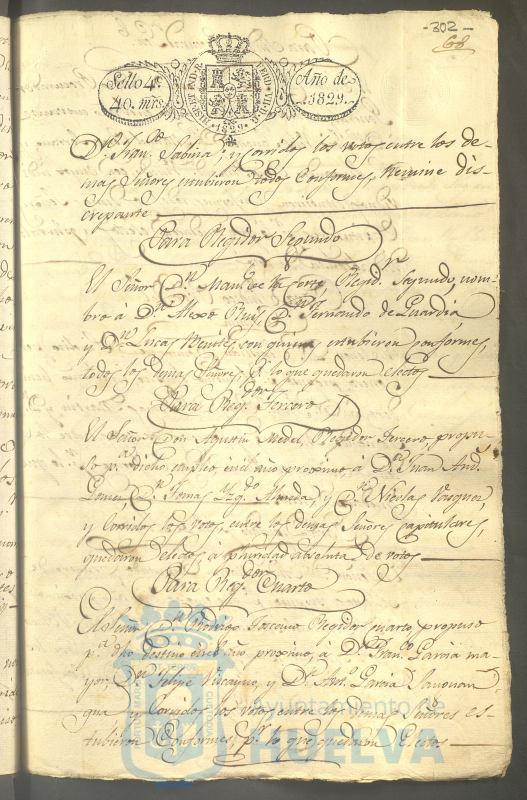 -302-
68
Sello 4º
40. mrs.
HISPAN. ET IND. R.
FERD. VII. D. G.
1829
Año de
1829.
Dn. Franco. Sabina; y corridos los votos entre los de-
mas Señores estubieron todos Conformes, Nemine dis-
crepante
Para Regidor Segundo
El Señor Dn. Manl. de la Corte, Regidr. Segundo, nom-
bro á Dn. Alexo Ruis, Dn. Fernando de Guardia
y Dn. Lucas Benites, con quienes estubieron conformes,
todos los demas Señores, pr. lo que quedaron electos
Para Regidor Tercero
El Señor Don Agustin Medel, Regidor Tercero, propu-
so pa. dicho empleo en el año proximo á Dn. Juan And.
Dn. Tomas Yzqdo. y Dn. Nicolas Vasquez,
y Corridos los votos, entre los demas Señores capitulares,
quedaron electos á pluridad absoluta de votos
Para Regidor Cuarto
El Señor Dn. Rodrigo Regidor cuarto propuso
pa. dho destino en el año proximo, a Dn. Franco. Garcia ma-
yor, Dn. Felipe Viscayno, y Dn. Anto. Garcia
y Corridos los votos entre los demas Señores es-
tubieron Conformes, pr. lo que quedaron Electos
Ayuntamiento de
HUELVA